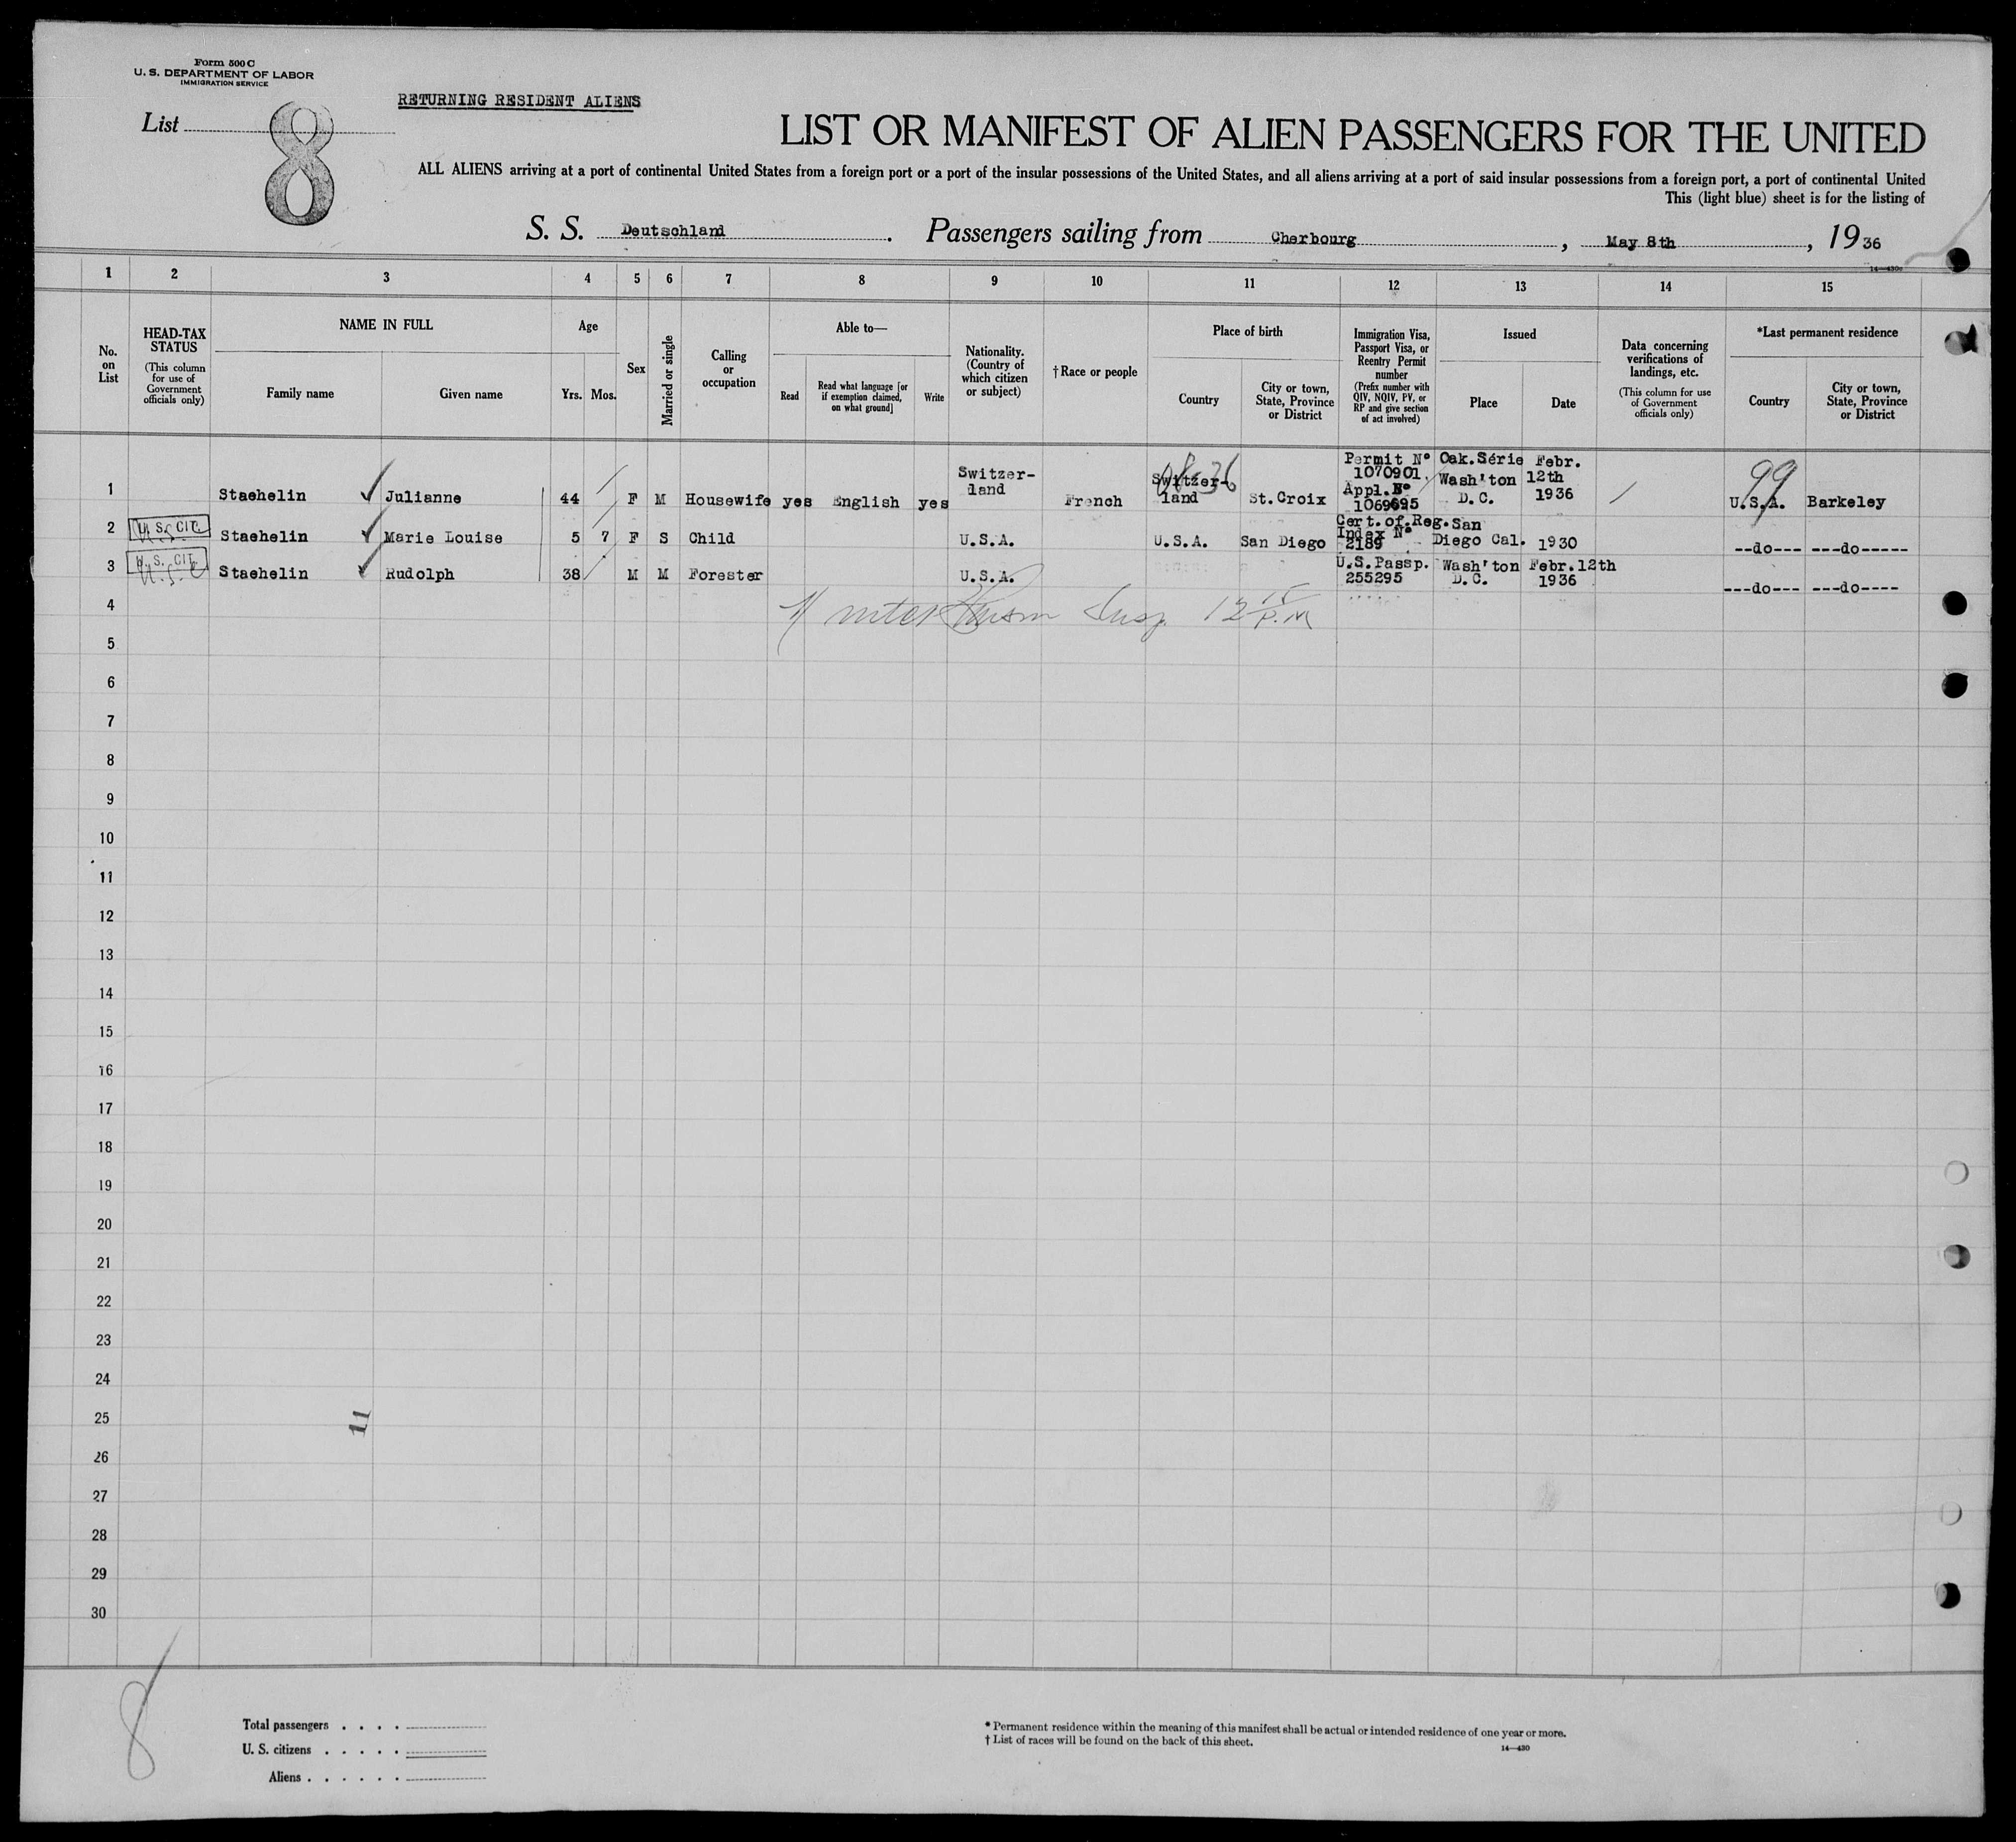 Form 500 C
U. S. DEPARTMENT OF LABOR
IMMIGRATION SERVICE
List 8
RETURNING RESIDENT ALIENS
LIST OR MANIFEST OF ALIEN PASSENGERS FOR THE UNITED
ALL ALIENS arriving at a port of continental United States from a foreign port or a port of the insular possessions of the United States, and all aliens arriving at a port of said insular possessions from a foreign port, a port of continental United
This (light blue) sheet is for the listing of
S. S. Deutschland. Passengers sailing from Cherbourg, May 8th, 1936
14—430c
1 2 3 4 5 6 7 8 9 10 11 12 13 14 15
No. on List
HEAD-TAX STATUS
(This column for use of Government officials only)
NAME IN FULL
Family name Given name
Age
Yrs. Mos.
Sex
Married or single
Calling or occupation
Able to—
Read
Read what language [or if exemption claimed, on what ground]
Write
Nationality. (Country of which citizen or subject)
†Race or people
Place of birth
Country
City or town, State, Province or District
Immigration Visa, Passport Visa, or Reentry Permit number
(Prefix number with QIV, NQIV, PV, or RP and give section of act involved)
Issued
Place Date
Data concerning verifications of landings, etc.
(This column for use of Government officials only)
*Last permanent residence
Country
City or town, State, Province or District
1 Staehelin Julianne 44 F M Housewife yes English yes Switzer-land French Switzer-land St.Croix Permit Nº 1070901. Appl.Nº 1069695 Oak.Série Wash'ton D.C. Febr. 12th 1936 99 U.S.A. Barkeley
2 U. S. CIT. Staehelin Marie Louise 5 7 F S Child U.S.A. U.S.A. San Diego Cert.of.Reg. Index Nº 2189 San Diego Cal. 1930 --do--- ---do-----
3 U. S. CIT. Staehelin Rudolph 38 M M Forester U.S.A. U.S.Passp. 255295 Wash'ton D.C. Febr.12th 1936 ---do--- ---do----
4
5
6
7
8
9
10
11
12
13
14
15
16
17
18
19
20
21
22
23
24
25
11
26
27
28
29
30
8
Total passengers . . . .
U. S. citizens . . . . .
Aliens . . . . . .
* Permanent residence within the meaning of this manifest shall be actual or intended residence of one year or more.
† List of races will be found on the back of this sheet.
14—430